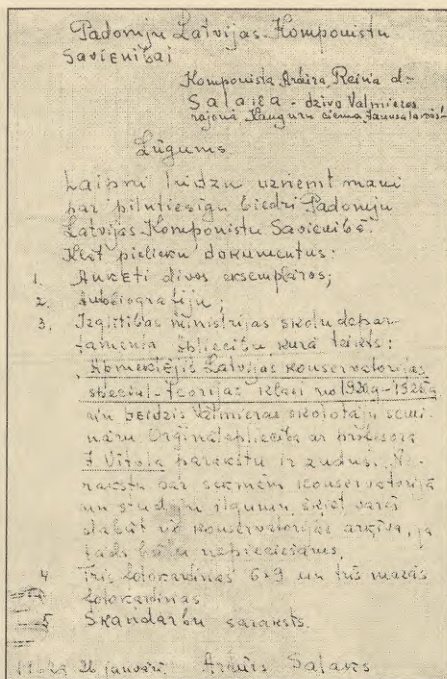 Padomju Latvijas Komponistu
Savienībai
Komponista Ardira, Reina d.
Salaka - dzīvo Valmieras
rajonā, Kauguru ciema
Lūgums
Laipni lūdzu uzņemt mani
par pilntiesīgu biedri Padomju
Latvijas Komponistu Savienībā.
Klāt pielieku dokumentus:
1. Anketi divos eksemplāros;
2. Autobiogrāfiju;
3. Izglītības ministrijas skolu depar-
tamenta apliecību kurā teikts:
Apmeklējis Latvijas konservatorijas
speciāl-teorijas klasi no 1920g-1925g
un beidzis Valmieras skolotāju semi-
nāru. apliecība ar profesora
J Vītola parakstu ir zudusi.
rakstu par sekmēm konservatorijā
un studiju ilgumu, šķiet varēs
dabūt no konservatorijas arķīva, ja
tāds būtu nepieciešams.
4 Trīs fotokartiņas 6x9 un trīs mazās
fotokartiņas
5 Skandarbu saraksts.
26. janvārī.